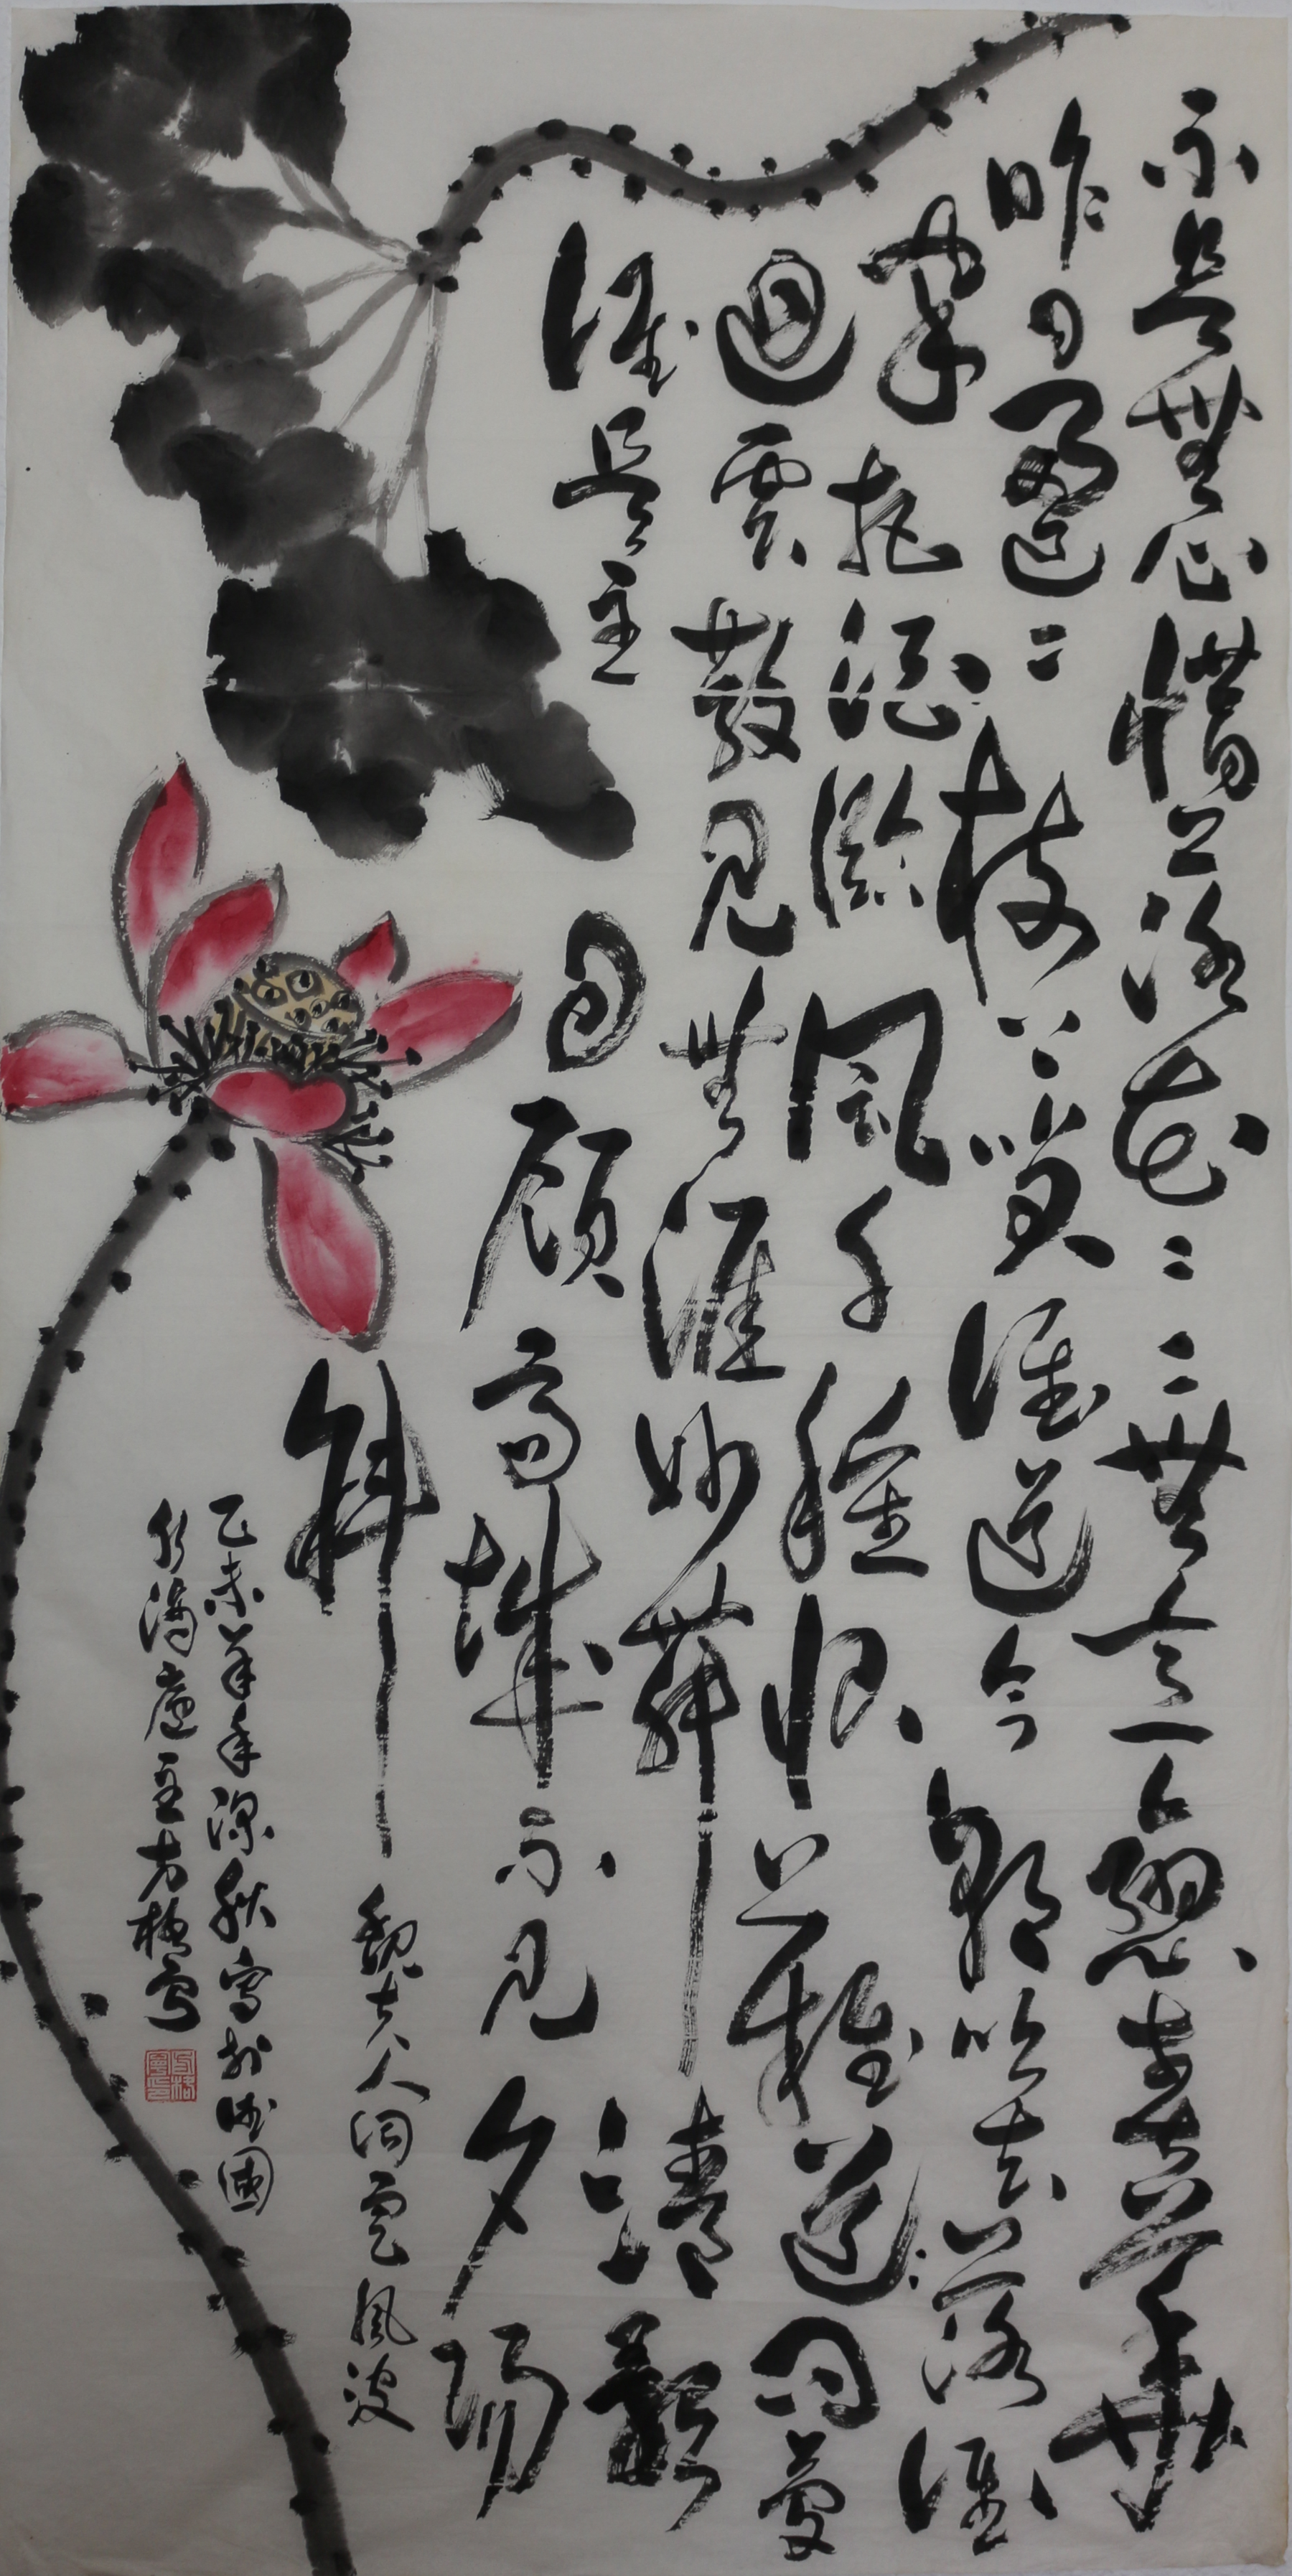 不是無心惜落花〻〻無意戀春華
昨日盈〻枝上笑誰道今朝吹去落誰
家把酒臨風千種恨難道問夢
迴雲散見無涯妙舞清歌
誰是主回顧高城不見夕陽
斜
魏夫人詞定風波
乙未羊年深秋寫於德國
廬主方